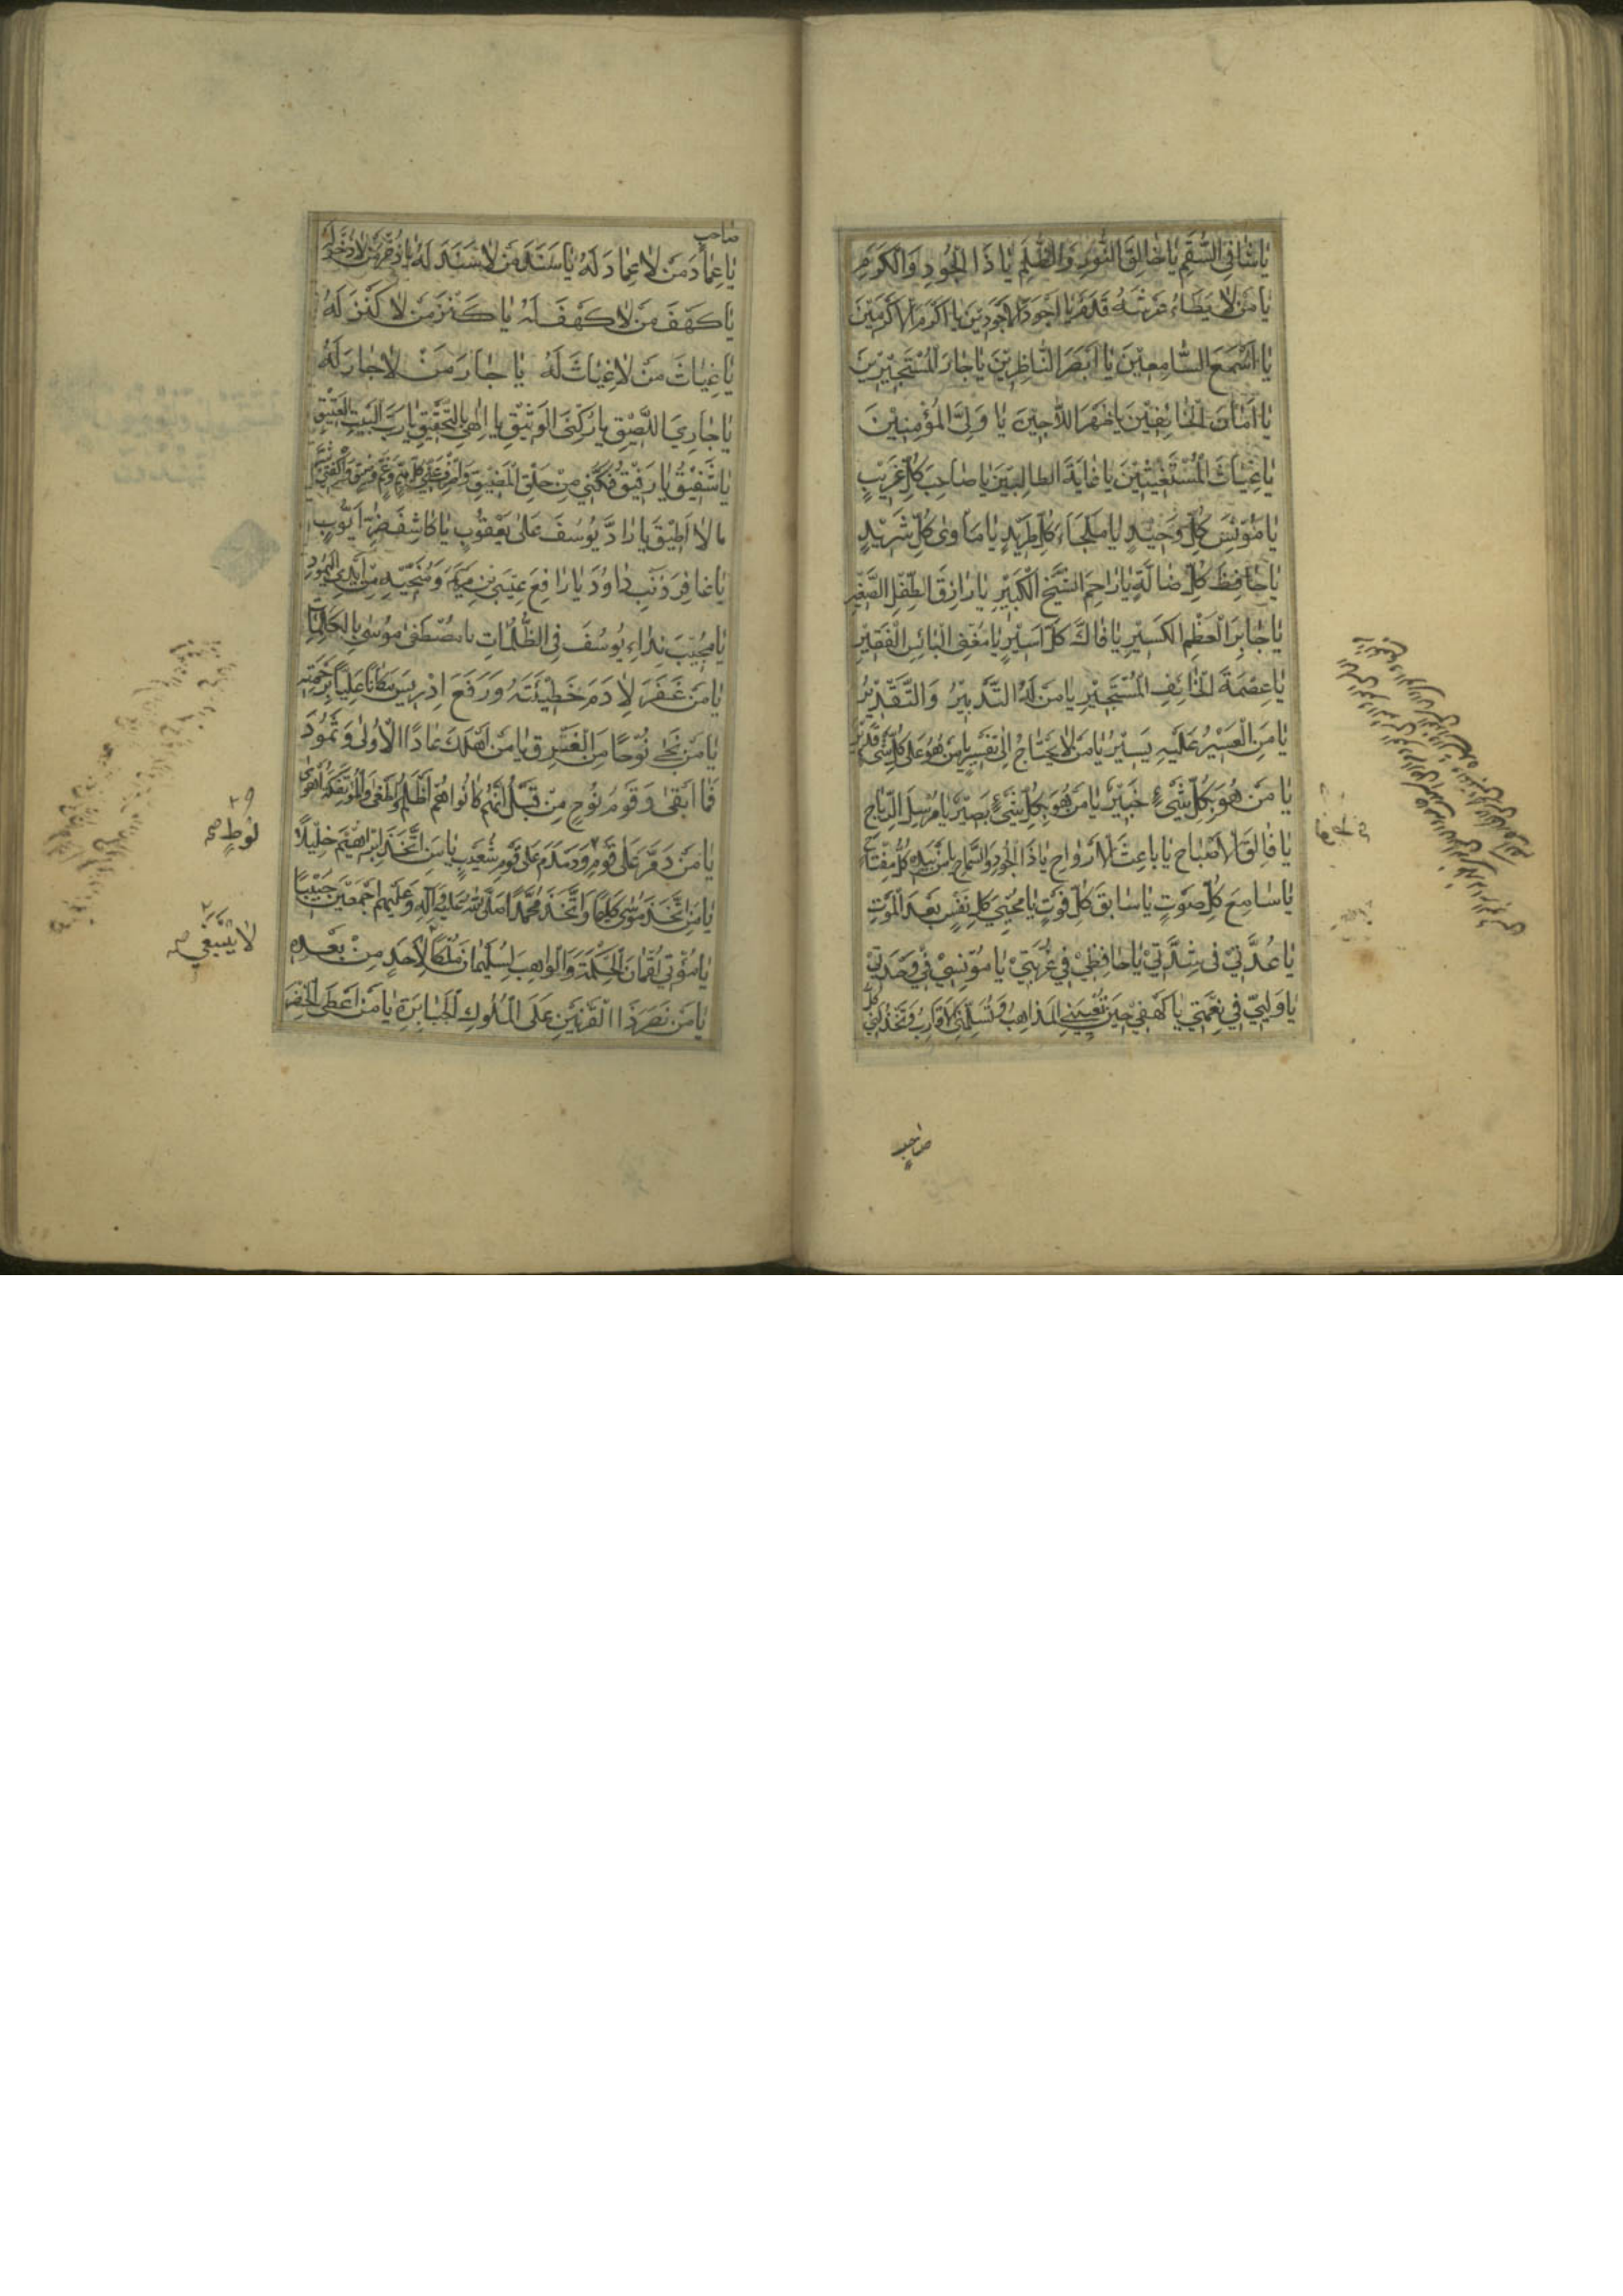 يا شافي السقم يا خالق النور والظلم يا ذا الجود والكرم
يا من لا يطاء عرشه قدم يا اجود الاجودين يا اكرم الاكرمين
يا اسمع السامعين يا ابصر الناظرين يا جار المستجيرين
يا امان الخائفين يا ظهر اللاجين يا ولي المؤمنين
يا غياث المستغيثين يا غاية الطالبين يا صاحب كل غريب
يا مونس كل وحيد يا ملجاء كل طريد يا ماوى كل شريد
يا حافظ كل ضالة يا راحم الشيخ الكبير يا رازق الطفل الصغير
يا جابر العظم الكسير يا فاك كل اسير يا مغني البائس الفقير
يا عصمة الخائف المستجير يا من له التدبير والتقدير
يا من العسير عليه يسير يا من لا يحتاج الى تفسير يا من هو على كل شيء قدير
يا من هو بكل شيء خبير يا من هو بكل شيء بصير يا مرسل الرياح
يا فالق الاصباح يا باعث الارواح يا ذا الجود والسماح يا من بيده كل مفتاح
يا سامع كل صوت يا سابق كل فوت يا محيي كل نفس بعد الموت
يا عدتي في شدتي يا حافظي في غربتي يا مونسي في وحدتي
يا وليي في نعمتي يا كهفي حين تعييني المذاهب وتسلمني الاقارب ويخذلني كل
صاحب
صاحب
يا عماد من لا عماد له يا سند من لا سند له يا ذخر من لا ذخر له
يا كهف من لا كهف له يا كنز من لا كنز له
يا غياث من لا غياث له يا جار من لا جار له
يا جاري اللصيق يا ركني الوثيق يا الهي بالتحقيق يا رب البيت العتيق
يا شفيق يا رفيق فكني من حلق المضيق واصرف عني كل هم وغم وضيق واكفني شر
ما لا اطيق يا راد يوسف على يعقوب يا كاشف ضر ايوب
يا غافر ذنب داود يا رافع عيسى بن مريم ومنجيه من ايدي اليهود
يا مجيب نداء يوسف في الظلمات يا مصطفى موسى بالكلمات
يا من غفر لادم خطيئته ورفع ادريس مكانا عليا برحمته
يا من نجى نوحا من الغرق يا من اهلك عادا الاولى وثمود
فما ابقى وقوم نوح من قبل انهم كانوا هم اظلم واطغى والمؤتفكة اهوى
يا من دمر على قوم ودمدم على قوم شعيب يا من اتخذ ابراهيم خليلا
لوط صح
يا من اتخذ موسى كليما واتخذ محمدا صلى الله عليه وآله وعليهم اجمعين حبيبا
يا مؤتي لقمان الحكمة والواهب لسليمان ملكا لاحد من بعده
لا ينبغي صح
يا من نصر ذا القرنين على الملوك الجبابرة يا من اعطى الخضر